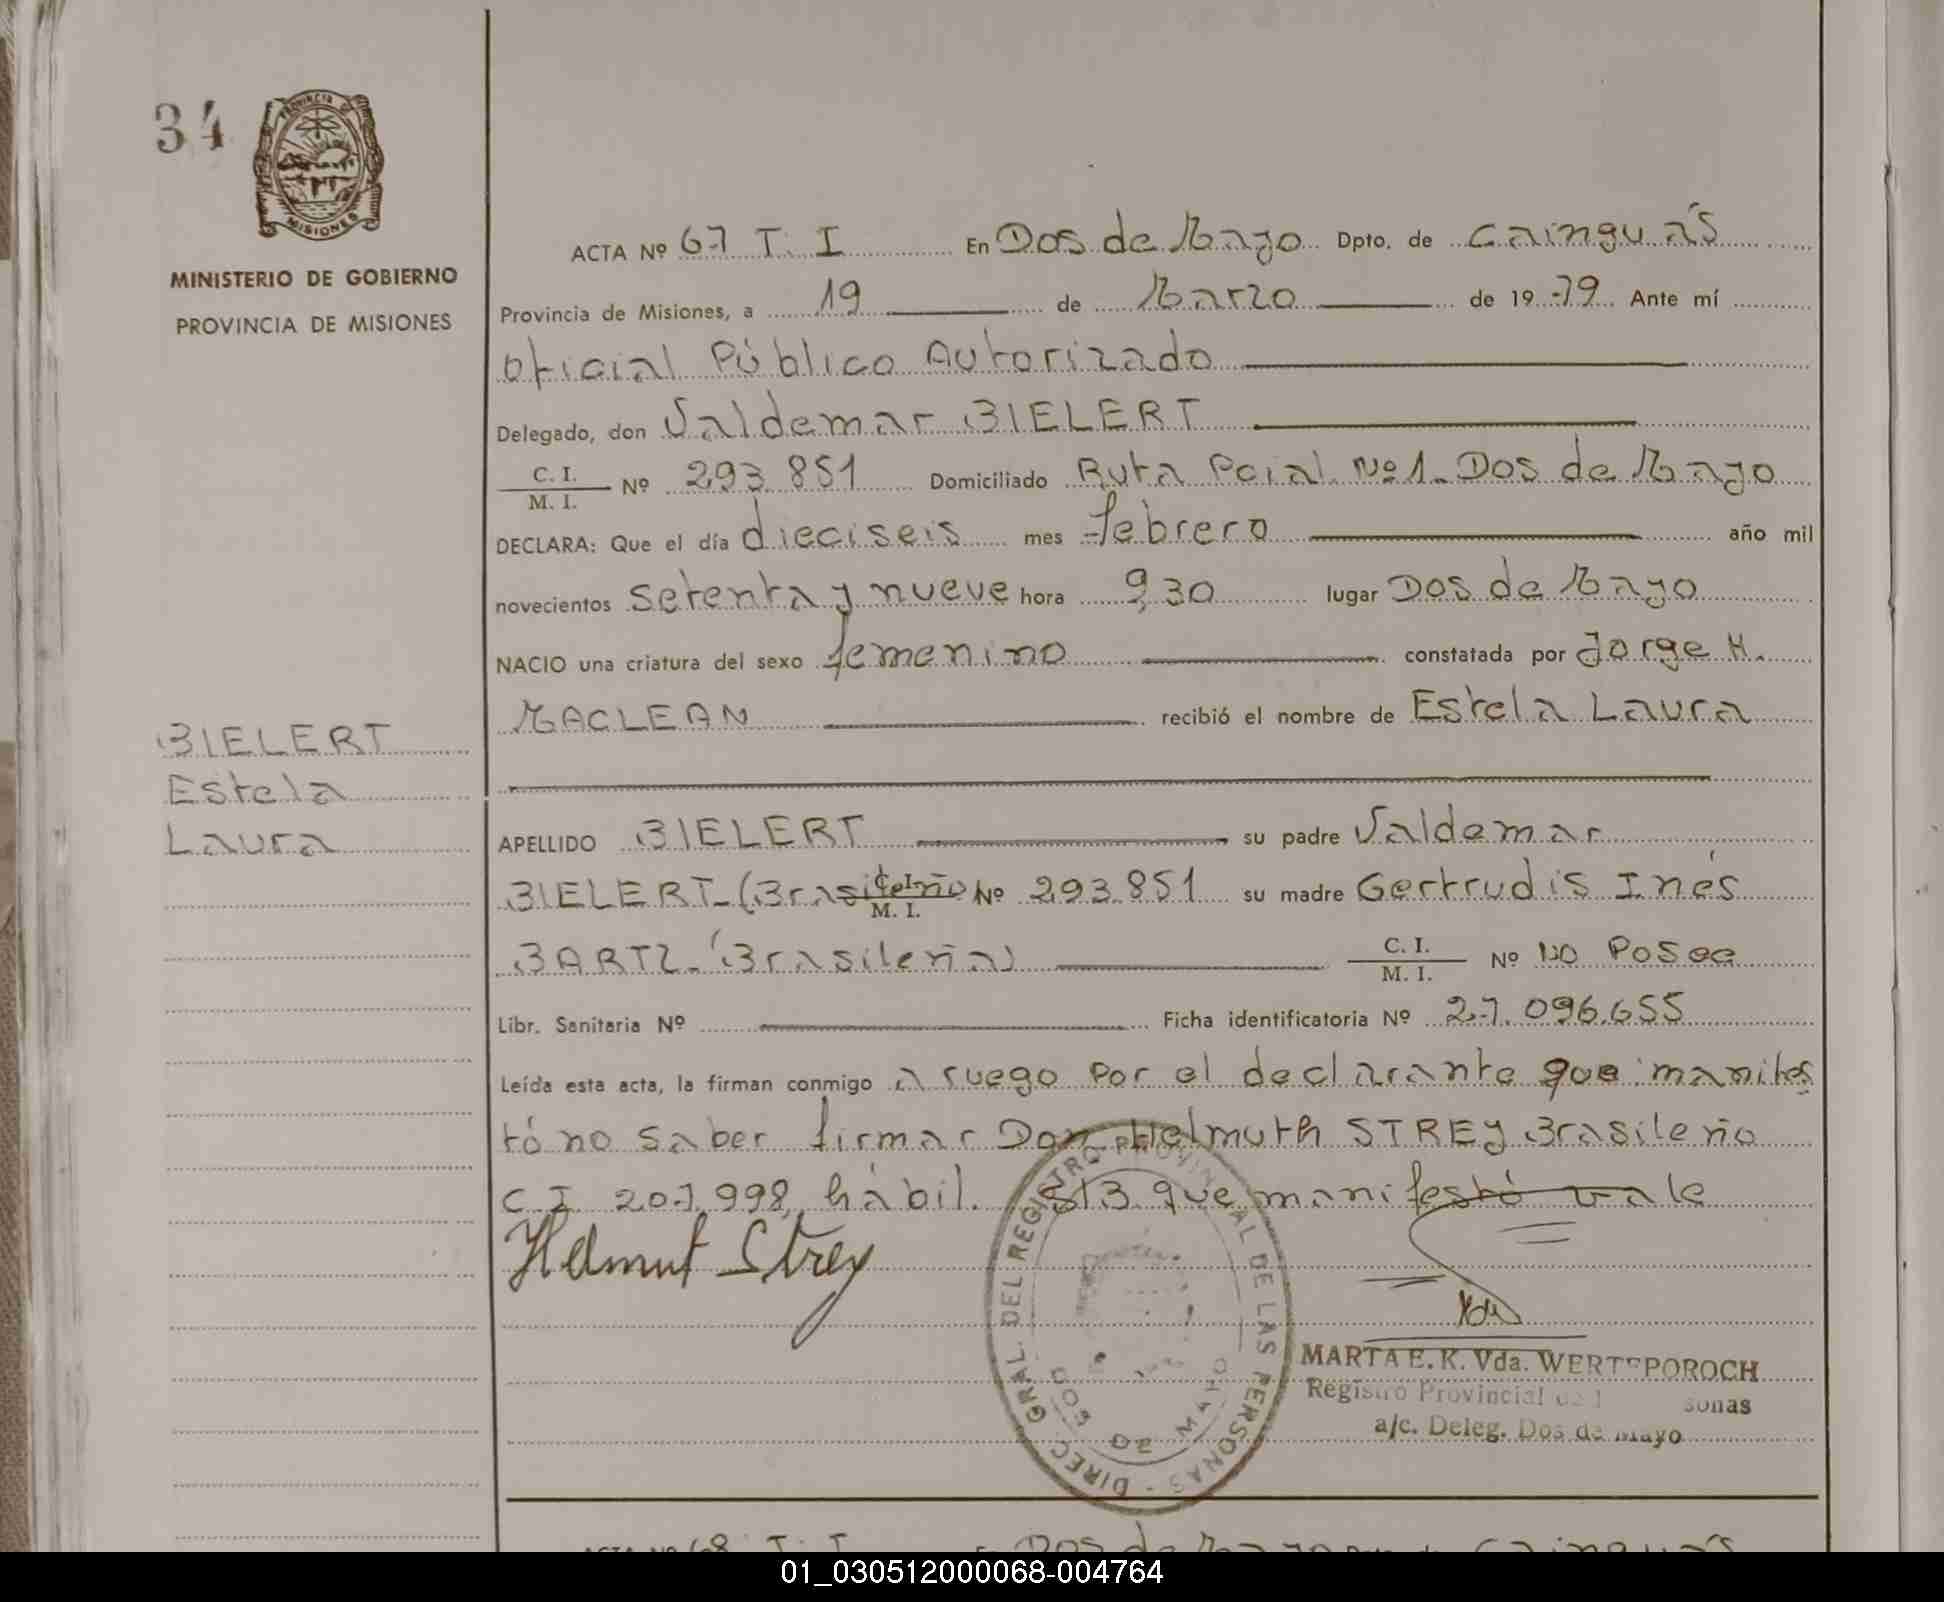 34
PROVINCIA DE
MISIONES
MINISTERIO DE GOBIERNO
PROVINCIA DE MISIONES
ACTA Nº 67 T. I En Dos de Mayo Dpto. de Cainguás
Provincia de Misiones, a 19 de Marzo de 19 79 Ante mí
Oficial Público Autorizado
Delegado, don Valdemar BIELERT
C. I.
M. I. Nº 293.851 Domiciliado Ruta Pcial. Nº 1. Dos de Mayo
DECLARA: Que el día dieciseis mes febrero año mil
novecientos setenta y nueve hora 9,30 lugar Dos de Mayo
NACIO una criatura del sexo femenino constatada por Jorge H.
MACLEAN recibió el nombre de Estela Laura
BIELERT
Estela
Laura
APELLIDO BIELERT su padre Valdemar
BIELERT-(Brasileño C. I. M. I. Nº 293.851 su madre Gertrudis Inés
BARTZ-(Brasileña) C. I. M. I. Nº No Posee
Libr. Sanitaria Nº Ficha identificatoria Nº 27.096.655
Leída esta acta, la firman conmigo a ruego por el declarante que manifes
tó no saber firmar Don Helmuth STREY Brasileño
C.I. 207.998, hábil. S/B que manifestó vale
Helmut Strey
DIREC. GRAL. DEL REGISTRO PROVINCIAL DE LAS PERSONAS -
DOS DE MAYO
MARTA E. K. Vda. WERTEPOROCH
Registro Provincial sonas
a/c. Deleg. Dos de Mayo
ACTA Nº 68 T. I En Dos de Mayo Dpto. de Cainguás
01_030512000068-004764